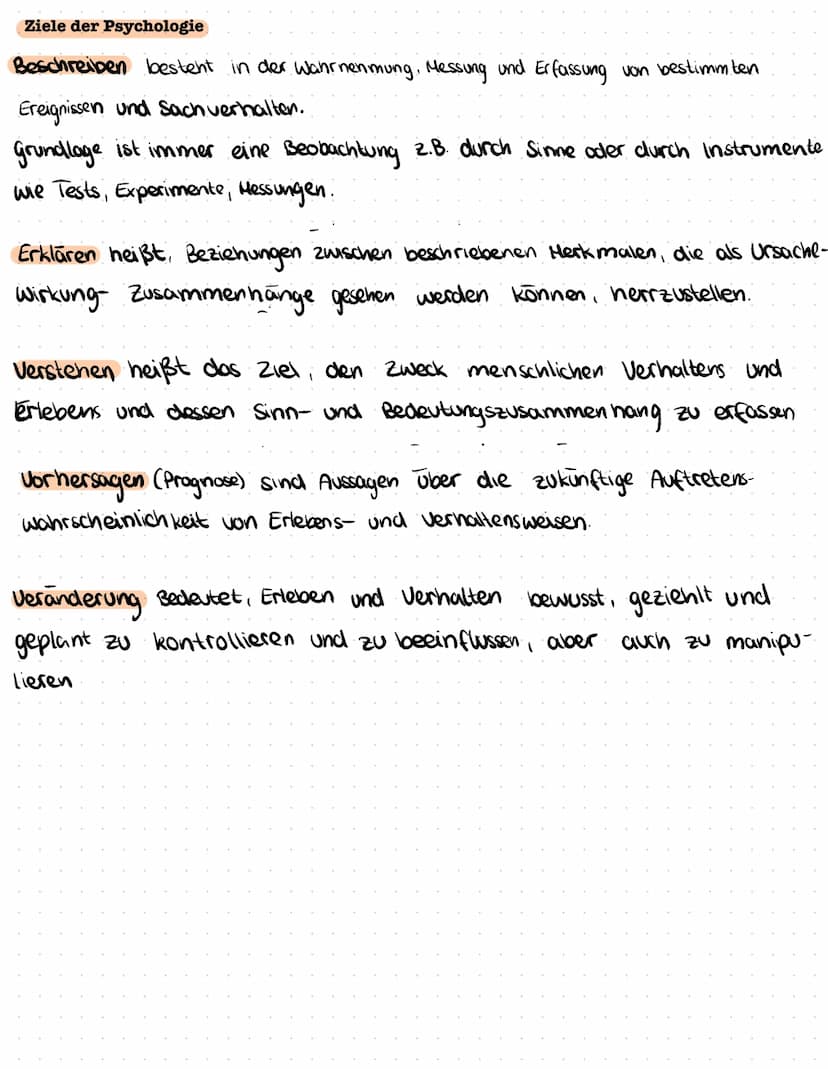 Ziele der Psychologie
Beschreiben besteht in der Wahrnehmung, Messung und Erfassung von bestimmten
Ereignissen und Sachverhalten.
Grundlage ist immer eine Beobachtung z.B. durch Sinne oder durch Instrumente
wie Tests, Experimente, Messungen.
Erklären heißt, Beziehungen zwischen beschriebenen Merkmalen, die als Ursache-
Wirkung- Zusammenhänge gesehen werden können, herrzustellen.
Verstehen heißt das Ziel, den Zweck menschlichen Verhaltens und
Erlebens und dessen Sinn- und Bedeutungszusammenhang zu erfassen
Vorhersagen (Prognose) sind Aussagen über die zukünftige Auftretens-
wahrscheinlichkeit von Erlebens- und Verhaltensweisen.
Veränderung Bedeutet, Erleben und Verhalten bewusst, geziehlt und
geplant zu kontrollieren und zu beeinflussen, aber auch zu manipu-
lieren